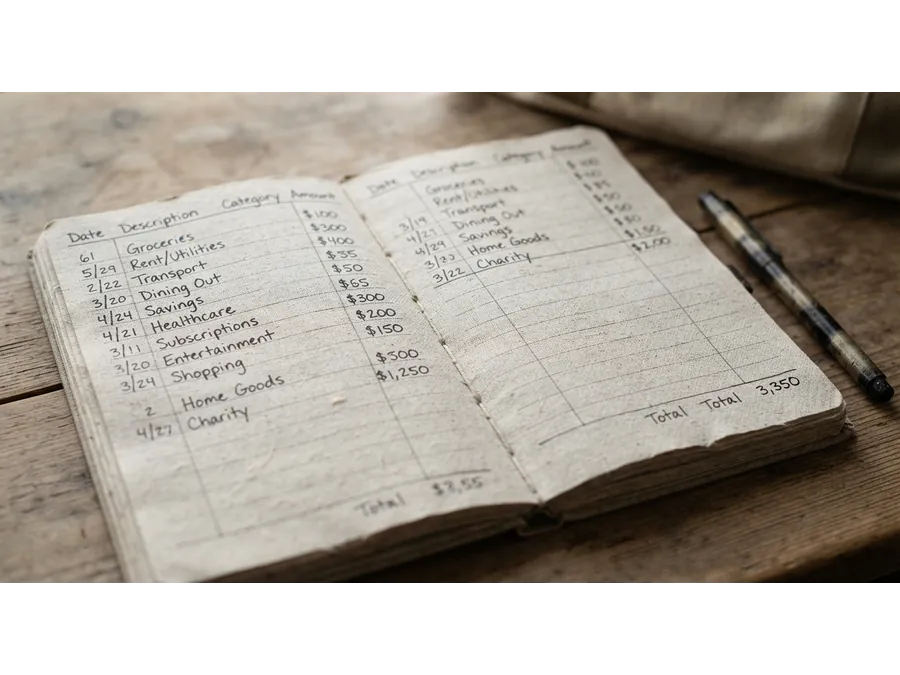 Date Description Category Amount
61 Groceries $100
5/29 Rent/Utilities $300
2/22 Transport $400
3/20 Dining Out $35
4/24 Savings $50
4/21 Healthcare $65
3/11 Subscriptions $300
3/20 Entertainment $200
3/24 Shopping $150
2 Home Goods $300
4/27 Charity $1,250
Total
Date Description Category Amount
Groceries
Rent/Utilities
3/19 Transport
4/21 Dining Out
4/29 Savings
Home Goods
3/22 Charity $2.00
Total Total 3,350